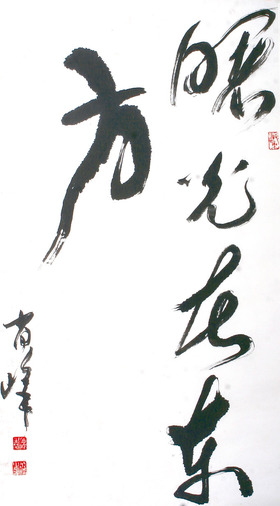 曙光在东
方
肖峰